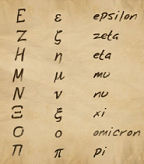 Ε ε epsilon
Ζ ζ zeta
Η η eta
Μ μ mu
Ν ν nu
Ξ ξ xi
Ο ο omicron
Π π pi